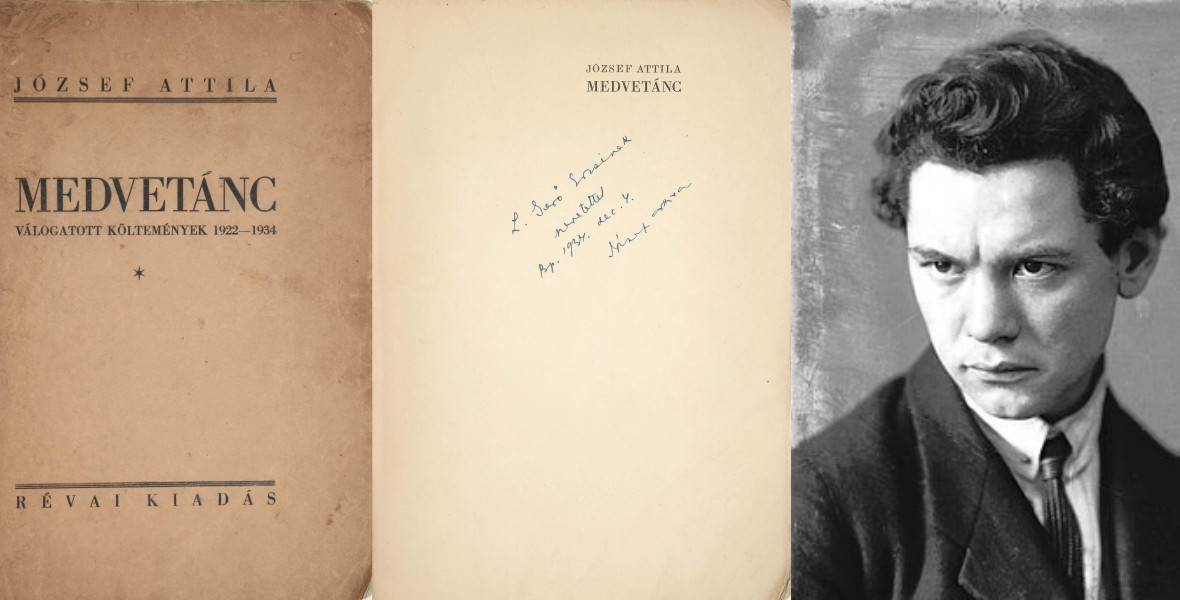 JÓZSEF ATTILA
MEDVETÁNC
VÁLOGATOTT KÖLTEMÉNYEK 1922—1934
RÉVAI KIADÁS
JÓZSEF ATTILA
MEDVETÁNC
L. Gerő
szeretettel
Bp. 1934. dec. 4.
József Attila